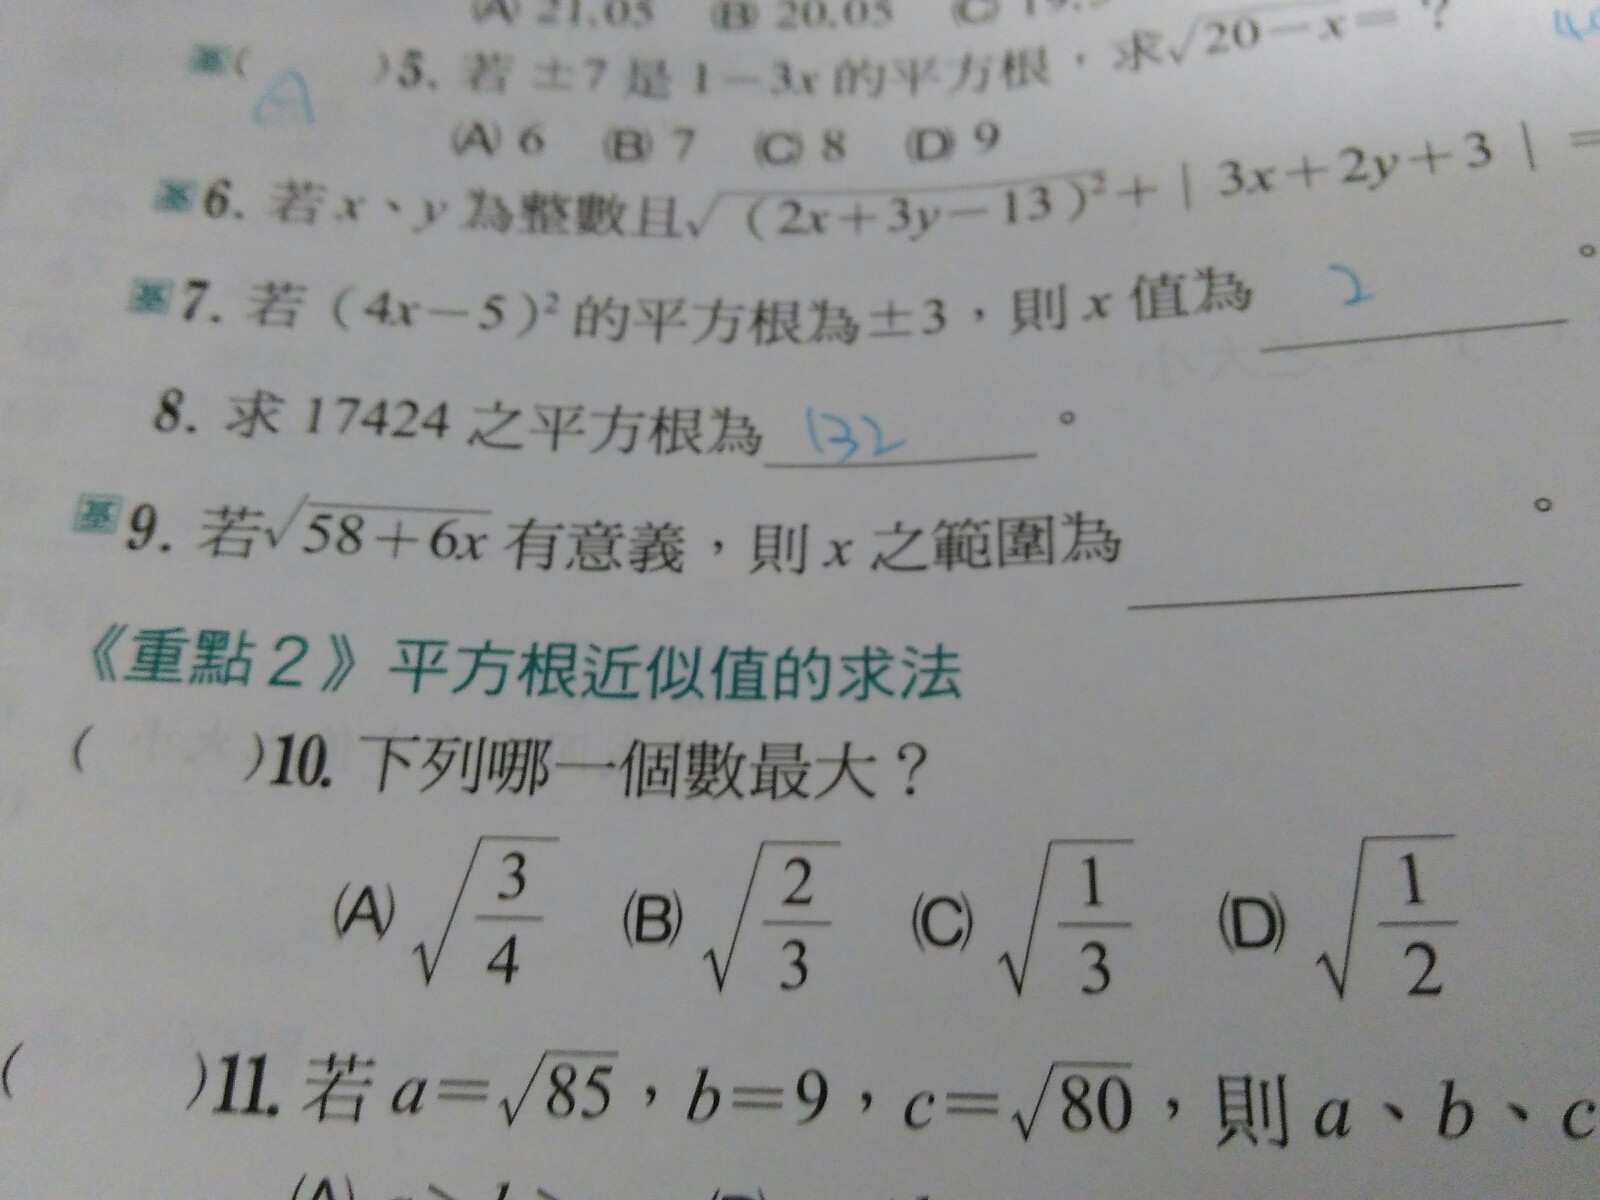 (A) 21.05 (B) 20.05 (C) 19.
基( A )5. 若 ±7 是 1－3x 的平方根，求√20－x＝？
(A) 6 (B) 7 (C) 8 (D) 9
基6. 若 x、y 為整數且√(2x＋3y－13)²＋｜3x＋2y＋3｜＝
。
基7. 若（4x－5）²的平方根為±3，則 x 值為 2 。
8. 求 17424 之平方根為 132 。
基9. 若√58＋6x 有意義，則 x 之範圍為 。
《重點2》平方根近似值的求法
( )10. 下列哪一個數最大？
(A) √3/4 (B) √2/3 (C) √1/3 (D) √1/2
( )11. 若 a＝√85，b＝9，c＝√80，則 a、b、c